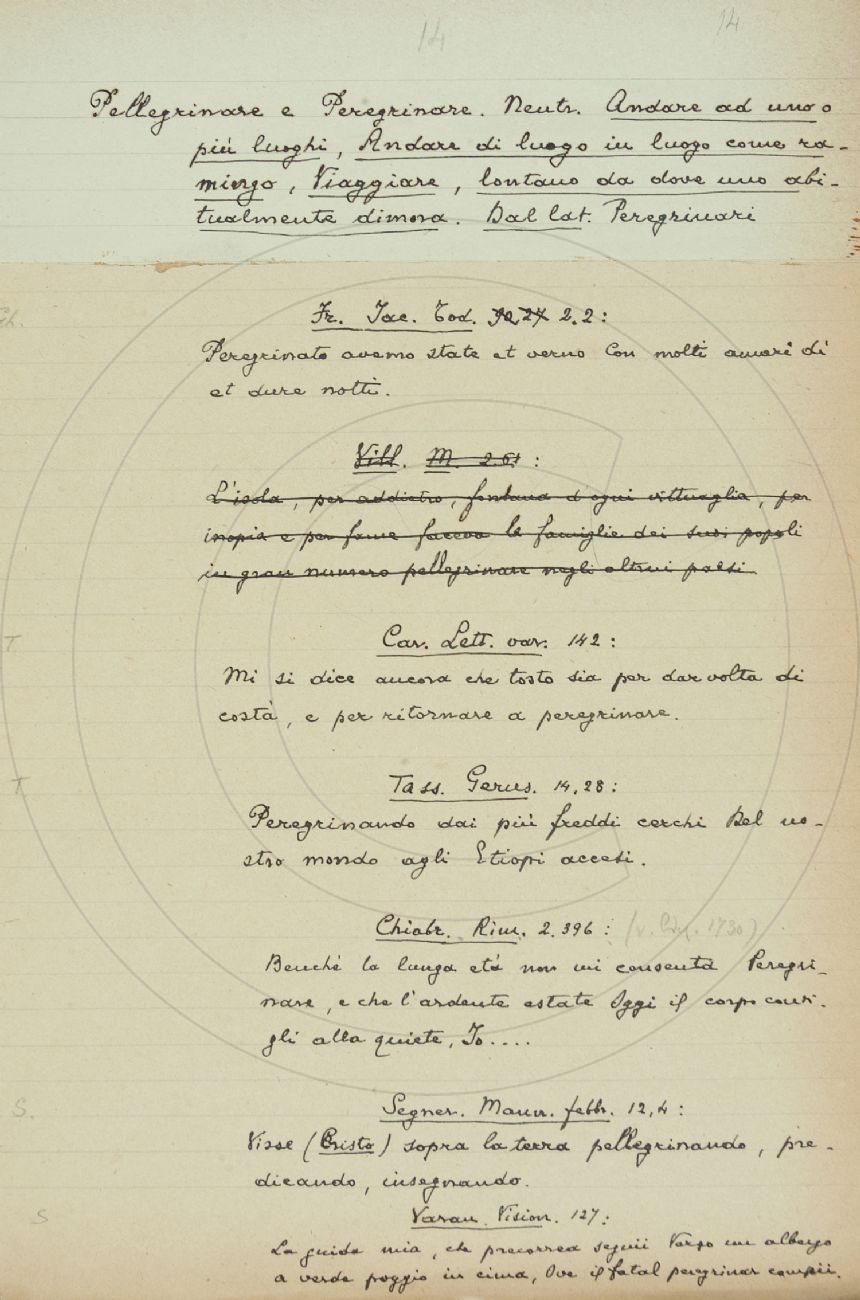 14 14
Pellegrinare e Peregrinare. Neutr. Andare ad uno o
più luoghi, Andare di luogo in luogo come ra-
mingo, Viaggiare, lontano da dove uno abi-
tualmente dimora. Dal lat. Peregrinari
Fr. Iac. Tod. 2.2:
Peregrinato avemo state et verno Con molti amari dì
et dure notti.
Vill. M. 2.61:
L'isola, per addietro, fontana d'ogni vittuaglia, per
inopia e per fame faceva le famiglie dei suoi popoli
in gran numero pellegrinare negli altrui paesi
T
Car. Lett. var. 142:
Mi si dice ancora che tosto sia per dar volta di
costà, e per ritornare a peregrinare.
T
Tass. Gerus. 14.28:
Peregrinando dai più freddi cerchi Del no-
stro mondo agli Etiopi accesi.
Chiabr. Rim. 2.396: (v. 1730)
Benchè la lunga età non mi consenta Peregri-
nare, e che l'ardente estate Oggi il corpo consi-
gli alla quiete, Io....
S.
Segner. Mann. febbr. 12,4:
Visse (Cristo) sopra la terra pellegrinando, pre-
dicando, insegnando.
S
Varan. Vision. 127:
La guida mia, che precorrea seguii Verso un albergo
a verde poggio in cima, Ove il fatal peregrinar compii.